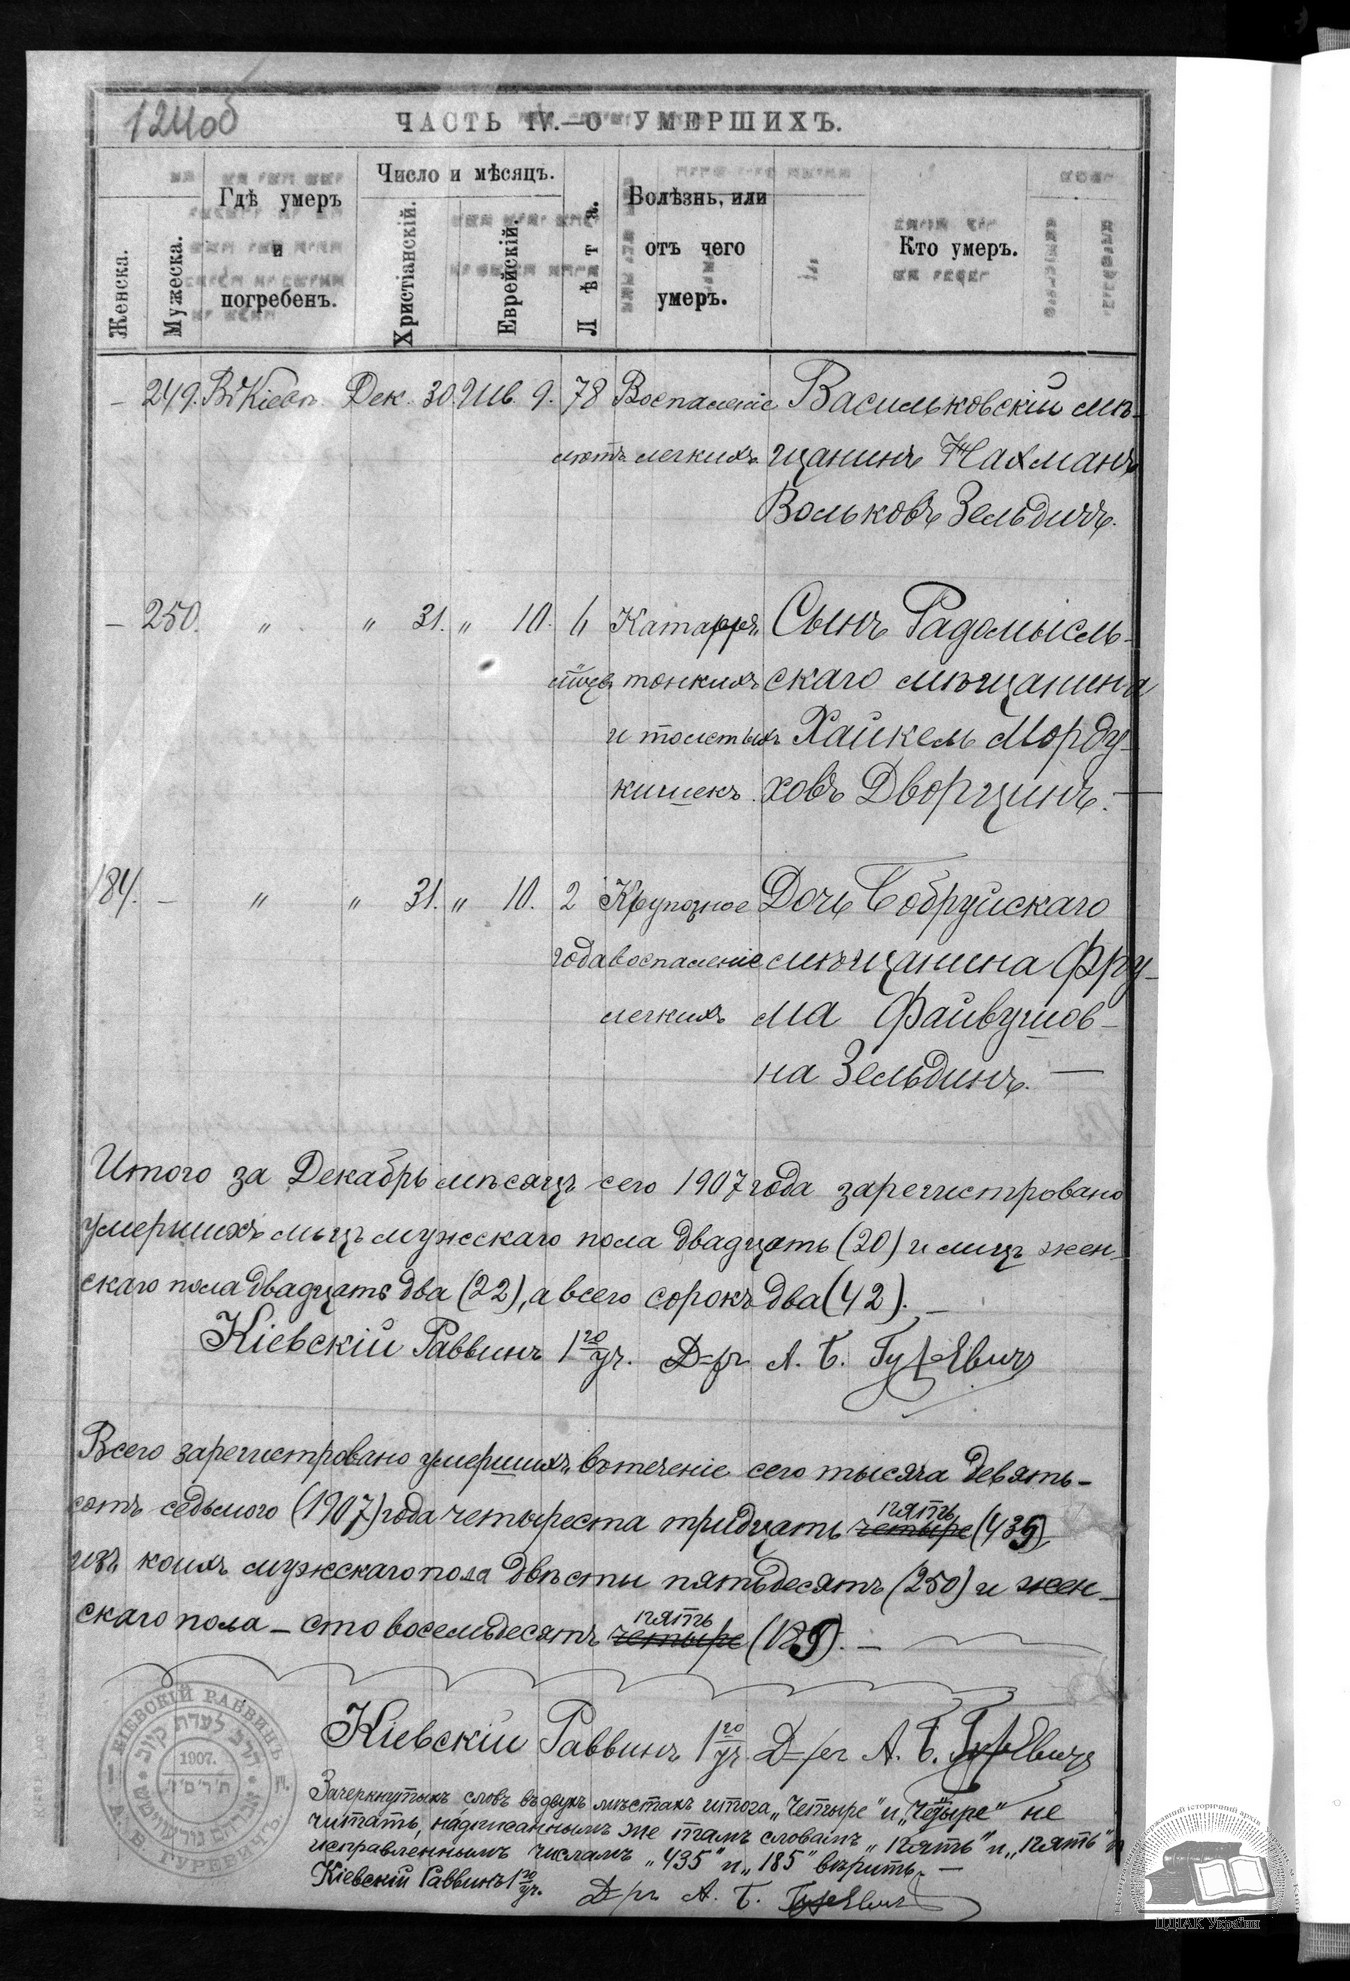 124об
ЧАСТЬ IV.—О УМЕРШИХЪ.
Женска.
Мужеска.
Гдѣ умеръ
и
погребенъ.
Число и мѣсяцъ.
Христіанскій.
Еврейскій.
Лѣта.
Болѣзнь, или
отъ чего
умеръ.
Кто умеръ.
— 249. Въ Кіевѣ. Дек. 30. Шв. 9. 78 Воспаленіе Васильковскій мѣ-
лѣтъ легкихъ щанинъ Нахманъ
Вольковъ Зельдичъ.
— 250. " " 31. " 10. Катарръ Сынъ Радомысль-
тонкихъ скаго мѣщанина
и толстыхъ Хайкель Морду-
кишекъ. ховъ Дворцинъ. —
184. — " " 31. " 10. 2 Крупозное Дочь Бобруйскаго
года воспаленіе мѣщанина Фру-
легкихъ ма Файвушов-
на Зельдинъ. —
Итого за Декабрь мѣсяцъ сего 1907 года зарегистровано
умершихъ лицъ мужскаго пола двадцать (20) и лицъ жен-
скаго пола двадцать два (22), а всего сорокъ два (42). —
Кіевскій Раввинъ 1го уч. Д-ръ А. Б. Гуревичъ
Всего зарегистровано умершихъ въ теченіе сего тысяча девять-
сотъ седьмого (1907) года четыреста тридцать четыре пять (435)
изъ коихъ мужскаго пола двѣсти пятьдесятъ (250) и жен-
скаго пола — сто восемьдесятъ четыре пять (185). —
Кіевскій Раввинъ 1го уч. Д-ръ А. Б. Гуревичъ
Зачеркнутыхъ словъ въ двухъ мѣстахъ итога „четыре" и „четыре" не
читать, надписаннымъ же тамъ словамъ „пять" и „пять" и
исправленнымъ числамъ „435" и „185" вѣрить. —
Кіевскій Раввинъ 1го уч. Д-ръ А. Б. Гуревичъ
КІЕВСКІЙ РАВВИНЪ
А. Б. ГУРЕВИЧЪ
הרב לעדת קיוב
1907.
ЦДІАК України